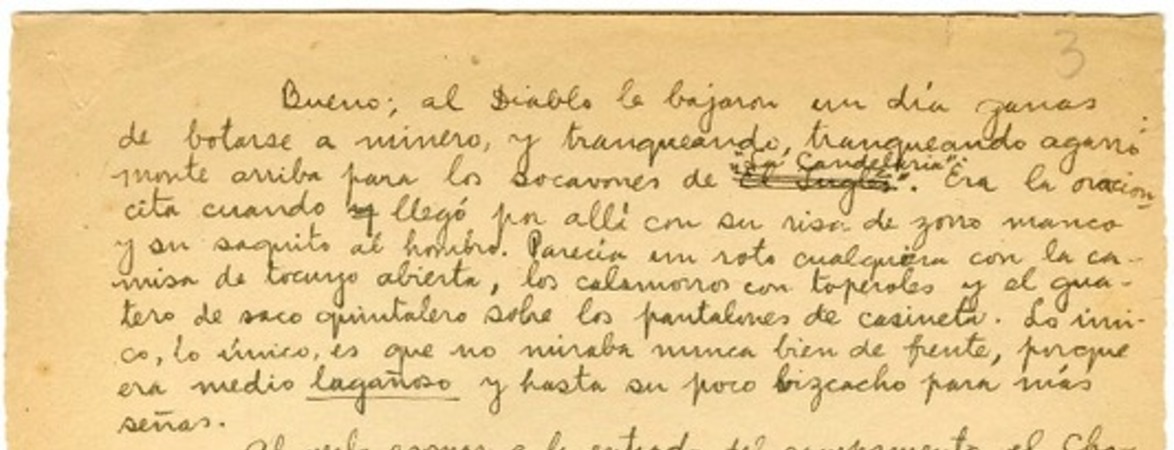 3
Bueno; al Diablo le bajaron un día ganas
de botarse a minero, y tranqueando, tranqueando agarró
"La Candelaria"
monte arriba para los socavones de "El Inglés". Era la oracion-
cita cuando y llegó por allí con su risa de zorro manco
y su saquito al hombro. Parecía un roto cualquiera con la ca-
misa de tocuyo abierta, los calamorros con toperoles y el gua-
tero de saco quintalero sobre los pantalones de casineta. Lo úni-
co, lo único, es que no miraba nunca bien de frente, porque
era medio lagañoso y hasta su poco bizcacho para más
señas.
Al verlo a la entrada del campamento, el